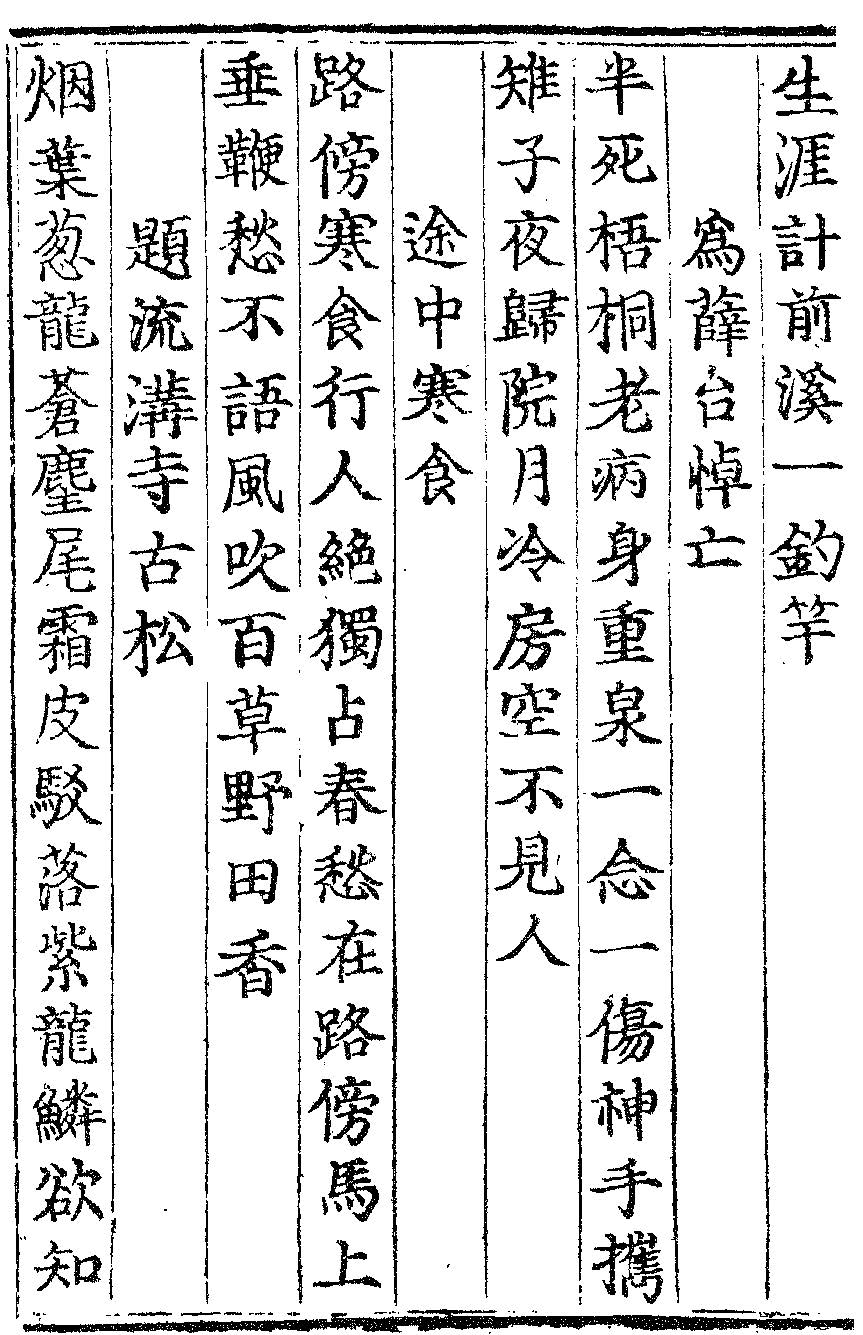 生涯計前溪一釣竿
爲薛台悼亡
半死梧桐老病身重泉一念一傷神手攜
雉子夜歸院月冷房空不見人
途中寒食
路傍寒食行人絶獨占春愁在路傍馬上
垂鞭愁不語風吹百草野田香
題流溝寺古松
烟葉葱龍蒼麈尾霜皮駁落紫龍鱗欲知